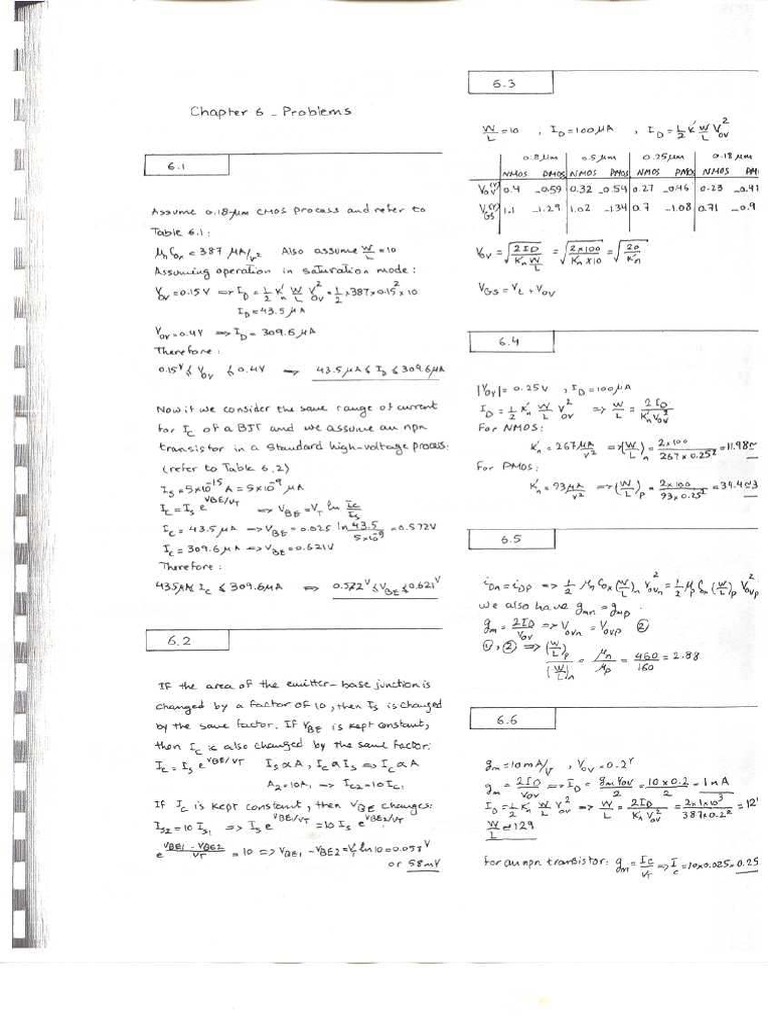 Chapter 6 - Problems
6.1
Assume 0.18-μm CMOS process and refer to
Table 6.1:
μn Cox = 387 μA/V² Also assume W/L = 10
Assuming operation in saturation mode:
Vov = 0.15 V ⇒ ID = 1/2 K'n W/L Vov² = 1/2 × 387 × 0.15² × 10
ID = 43.5 μA
Vov = 0.4V ⇒ ID = 309.6 μA
Therefore:
0.15V ≤ Vov ≤ 0.4V ⇒ 43.5 μA ≤ ID ≤ 309.6 μA
Now if we consider the same range of current
for IC of a BJT and we assume an npn
transistor in a standard high-voltage process:
(refer to Table 6.2)
IS = 5×10⁻¹⁵ A = 5×10⁻⁹ μA
IC = IS e^VBE/VT ⇒ VBE = VT ln IC/IS
IC = 43.5 μA ⇒ VBE = 0.025 ln 43.5/5×10⁻⁹ = 0.572V
IC = 309.6 μA ⇒ VBE = 0.621V
Therefore:
43.5μA ≤ IC ≤ 309.6μA ⇒ 0.572V ≤ VBE ≤ 0.621V
6.2
If the area of the emitter-base junction is
changed by a factor of 10, then IS is changed
by the same factor. If VBE is kept constant,
then IC is also changed by the same factor:
IC = IS e^VBE/VT IS α A, IC α IS ⇒ IC α A
A2 = 10A1 ⇒ IC2 = 10 IC1
If IC is kept constant, then VBE changes:
IS2 = 10 IS1 ⇒ IS e^VBE1/VT = 10 IS e^VBE2/VT
e^(VBE1 - VBE2)/VT = 10 ⇒ VBE1 - VBE2 = VT ln 10 = 0.058V
or 58mV
6.3
W/L = 10 , ID = 100 μA , ID = 1/2 K' W/L Vov²
0.8 μm 0.5 μm 0.25 μm 0.18 μm
NMOS PMOS NMOS PMOS NMOS PMOS NMOS PM
Vov(V) 0.4 -0.59 0.32 -0.54 0.27 -0.46 0.23 -0.41
VGS(V) 1.1 -1.29 1.02 -1.34 0.7 -1.08 0.71 -0.9
Vov = √(2ID / K'n W/L) = √(2 × 100 / K'n × 10) = √(20 / K'n)
VGS = Vt + Vov
6.4
|Vov| = 0.25V , ID = 100 μA
ID = 1/2 K'n W/L Vov² ⇒ W/L = 2ID / K'n Vov²
For NMOS:
K'n = 267 μA/V² ⇒ (W/L)n = 2×100 / 267×0.25² = 11.98≈
For PMOS:
K'n = 93 μA/V² ⇒ (W/L)p = 2×100 / 93×0.25² = 34.4≈3
6.5
iDn = iDp ⇒ 1/2 μn Cox (W/L)n Vovn² = 1/2 μp Cox (W/L)p Vovp²
We also have gmn = gmp
gm = 2ID/Vov ⇒ Vovn = Vovp ②
①, ② ⇒ (W/L)p / (W/L)n = μn/μp = 460/160 = 2.88
6.6
gm = 10 mA/V , Vov = 0.2V
gm = 2ID/Vov ⇒ ID = gm Vov/2 = 10×0.2/2 = 1mA
ID = 1/2 K'n W/L Vov² ⇒ W/L = 2ID / K'n Vov² = 2×1×10³ / 387×0.2² = 12
W/L = 129
For an npn transistor: gm = IC/VT ⇒ IC = 10×0.025 = 0.25